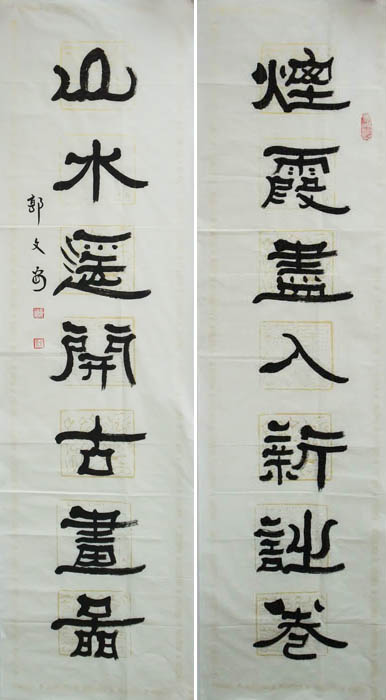 煙霞盡入新詩卷
山水遙開古畫圖
郭文安